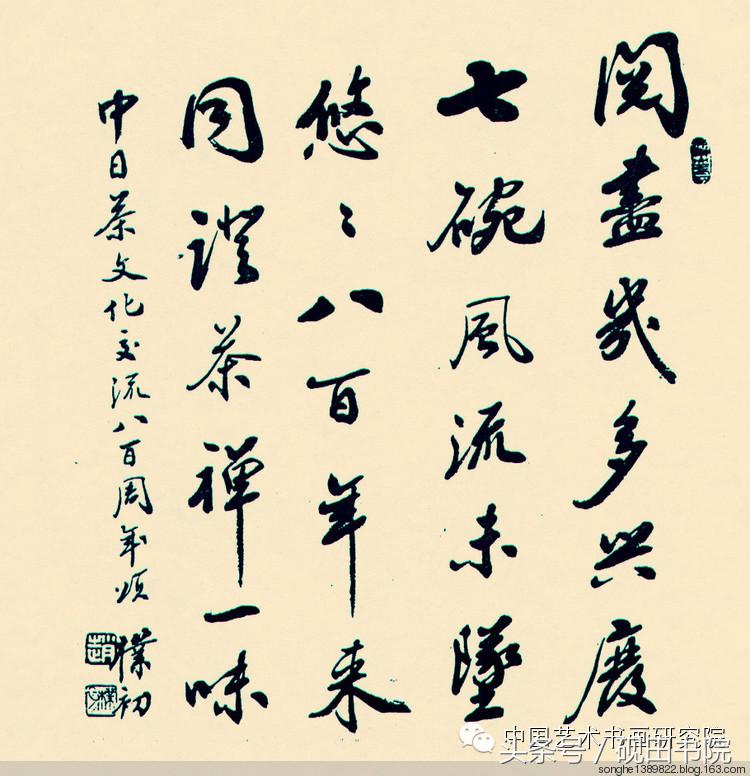 阅盡幾多兴廢
七碗風流未墜
悠〻八百年来
同證茶禅一味
中日茶文化交流八百周年頌
樸初
中国艺术书画研究院
头条号/砚田书院
songhe1389822.blog.163.com